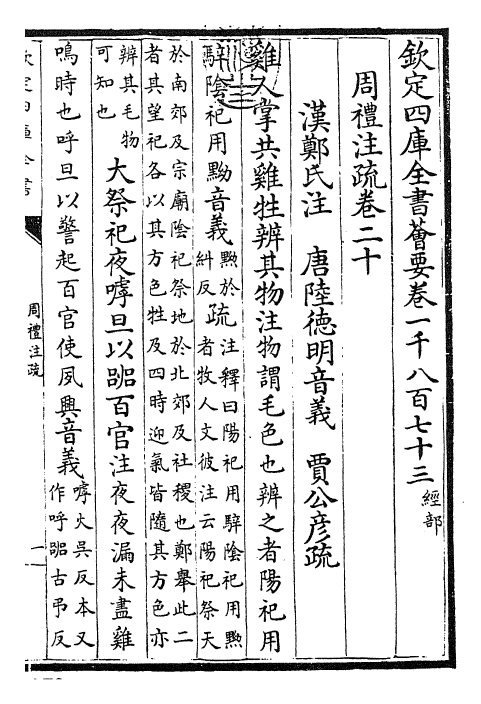 欽定四庫全書薈要卷一千八百七十三經部
周禮注疏卷二十
漢鄭氏注　唐陸德明音義　賈公彥疏
雞人掌共雞牲辨其物注物謂毛色也辨之者陽祀用
騂陰祀用黝音義黝於糾反疏注釋曰陽祀用騂陰祀用黝者牧人文彼注云陽祀祭天
於南郊及宗廟陰祀祭地於北郊及社稷也鄭舉此二
者其望祀各以其方色牲及四時迎氣皆隨其方色亦
辨其毛物可知也大祭祀夜嘑旦以嘂百官注夜夜漏未盡雞
鳴時也呼旦以警起百官使夙興音義嘑火吳反本又作呼嘂古弔反
周禮注疏
一